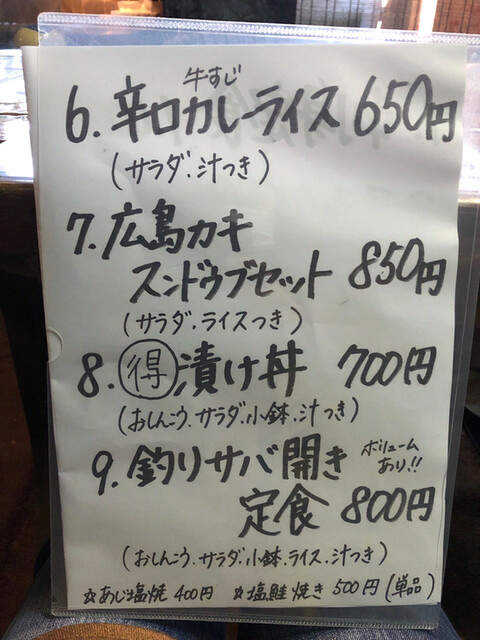 牛すじ
6. 辛口カレーライス 650円
(サラダ.汁つき)
7. 広島カキ
スンドゥブセット 850円
(サラダ.ライスつき)
8. 得 漬け丼 700円
(おしんこう.サラダ.小鉢.汁つき)
9. 釣りサバ開き ボリュームあり!!
定食 800円
(おしんこう.サラダ.小鉢.ライス.汁つき)
☆あじ塩焼 400円 ☆塩鮭焼き 500円 (単品)